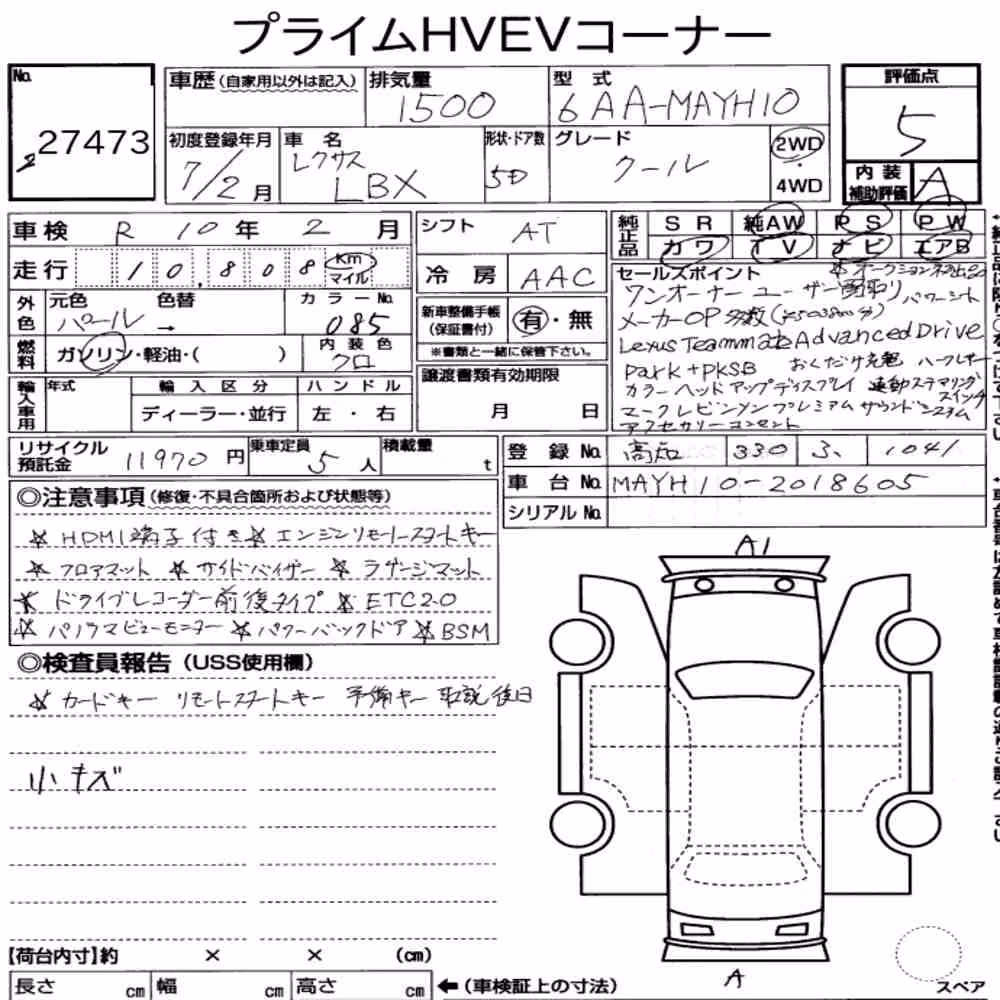 プライムHVEVコーナー
No.
27473
車歴(自家用以外は記入)
排気量
1500
型式
6AA-MAYH10
評価点
5
初度登録年月
7/2月
車名
レクサス
LBX
形状・ドア数
5D
グレード
クール
2WD
・
4WD
内装
補助評価
A
車検 R 10年 2月
シフト AT
純正品
SR 純AW PS PW
カワ TV ナビ エアB
走行 10,808 Km マイル
冷房 AAC
セールスポイント
☆オークション初出品
ワンオーナー ユーザー買取り パワーシート
メーカーOP多数(
Lexus Teammate Advanced Drive
Park + PKSB おくだけ充電 ハーフレザー
カラーヘッドアップディスプレイ 連動ステアリングスイッチ
マークレビンソン プレミアムサウンドシステム
アクセサリーコンセント
外色
元色
パール →
色替
カラーNo.
085
新車整備手帳
(保証書付)
有・無
※書類と一緒に保管下さい。
燃料
ガソリン・軽油・( )
内装色
クロ
譲渡書類有効期限
月 日
輸入車用
年式
輸入区分
ディーラー・並行
ハンドル
左・右
リサイクル
預託金
11970円
乗車定員
5人
積載量
t
登録No. 高知 330 3、 1041
車台No. MAYH10-2018605
シリアルNo.
◎注意事項(修復・不具合箇所および状態等)
☆HDMI端子付き ☆エンジンリモートスタートキー
☆フロアマット ☆サイドバイザー ☆ラゲージマット
☆ドライブレコーダー前後タイプ ☆ETC2.0
☆パノラマビューモニター ☆パワーバックドア ☆BSM
◎検査員報告(USS使用欄)
☆カードキー リモートスタートキー 予備キー 取説後日
小キズ
A1
A
【荷台内寸】約 × × (cm)
長さ cm 幅 cm 高さ cm
←(車検証上の寸法)
スペア